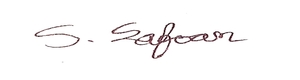 S. Safoan